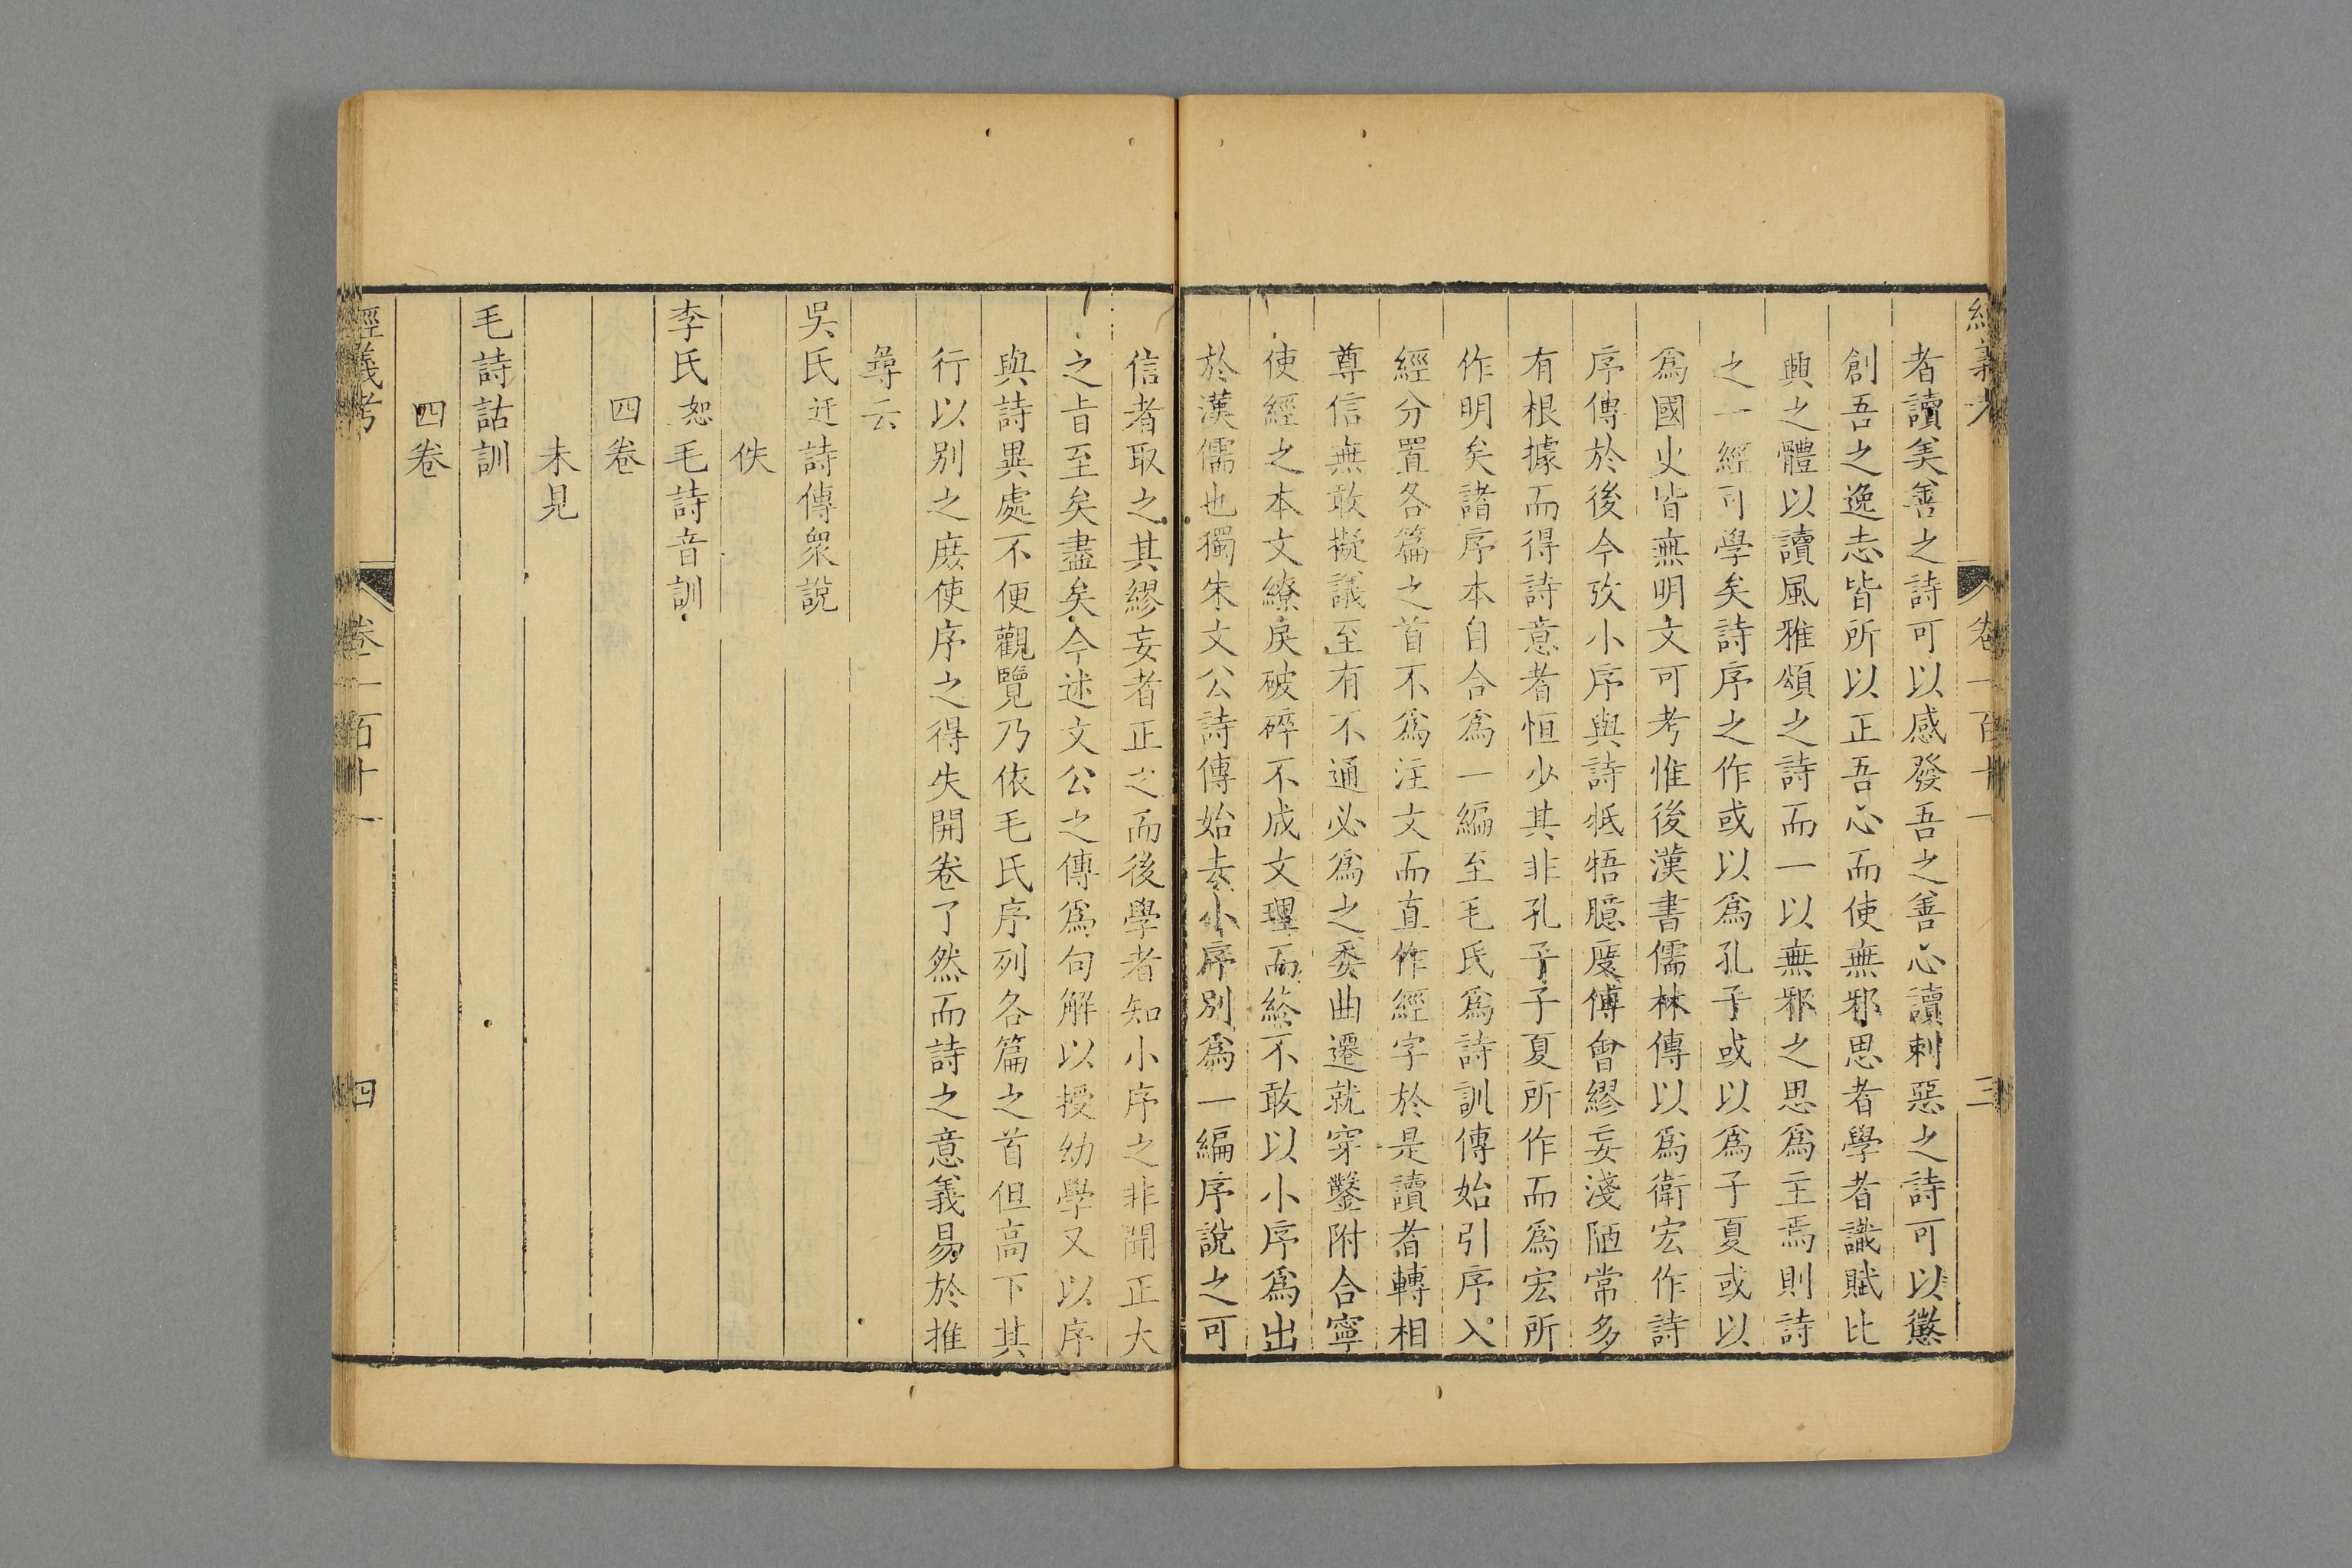 經義考 卷一百十一 三
者讀美善之詩可以感發吾之善心讀刺惡之詩可以懲
創吾之逸志皆所以正吾心而使無邪思者學者識賦比
興之體以讀風雅頌之詩而一以無邪之思爲主焉則詩
之一經可學矣詩序之作或以爲孔子或以爲子夏或以
爲國史皆無明文可考惟後漢書儒林傳以爲衛宏作詩
序傳於後今攷小序與詩牴牾臆度傅會繆妄淺陋常多
有根據而得詩意者恒少其非孔子子夏所作而爲宏所
作明矣諸序本自合爲一編至毛氏爲詩訓傳始引序入
經分置各篇之首不爲注文而直作經字於是讀者轉相
尊信無敢擬議至有不通必爲之委曲遷就穿鑿附合寧
使經之本文繚戾破碎不成文理而終不敢以小序爲出
於漢儒也獨朱文公詩傳始去小序別爲一編序說之可
信者取之其繆妄者正之而後學者知小序之非聞正大
之旨至矣盡矣今述文公之傳爲句解以授幼學又以序
與詩異處不便觀覽乃依毛氏序列各篇之首但高下其
行以别之庶使序之得失開卷了然而詩之意義易於推
尋云
吳氏迂詩傳衆說
佚
李氏恕毛詩音訓
四卷
未見
毛詩詁訓
四卷
經義考 卷一百十一 四